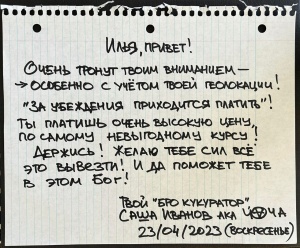 Илья, привет!
Очень тронут твоим вниманием —
→ особенно с учётом твоей геолокации!
"За убеждения приходится платить"!
Ты платишь очень высокую цену
по самому невыгодному курсу!
Держись! Желаю тебе сил всё
это вывезти! И да поможет тебе
в этом Бог!
Твой "бро кукуратор"
Саша Иванов aka
23/04/2023 (воскресенье)